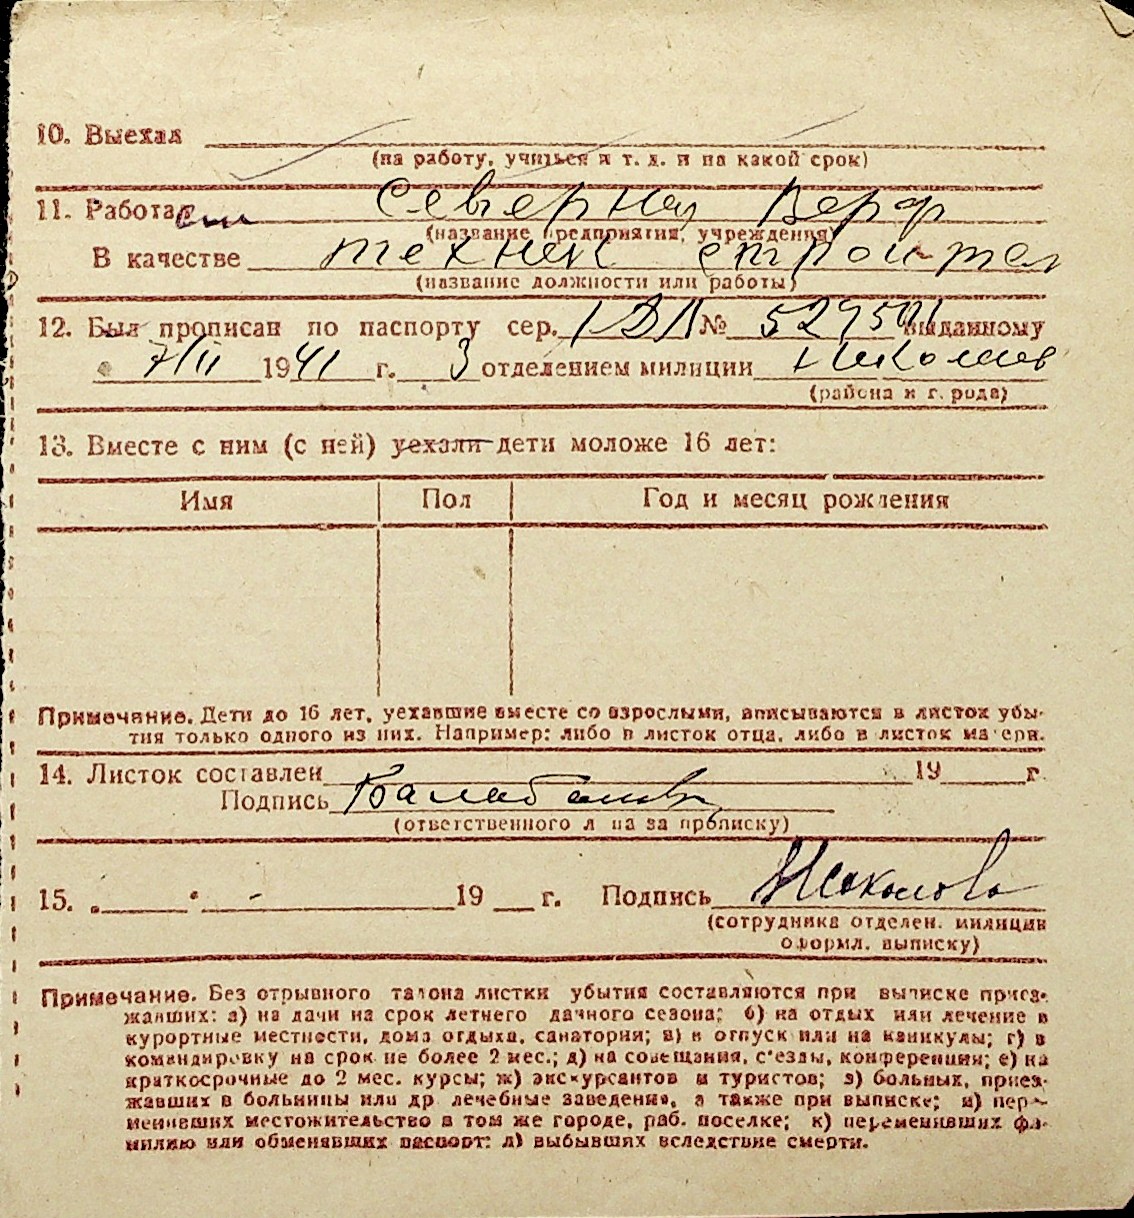 10. Выехал
(на работу, учиться и т. д. и на какой срок)
11. Работа Северная Верф
(название предприятия, учреждения)
В качестве техник строител
(название должности или работы)
12. Был прописан по паспорту сер. № выданному
1941 г. 3 отделением милиции Николаев
(района и города)
13. Вместе с ним (с ней) уехали дети моложе 16 лет:
Имя Пол Год и месяц рождения
Примечание. Дети до 16 лет, уехавшие вместе со взрослыми, вписываются в листок убы-
тия только одного из них. Например: либо в листок отца, либо в листок матери.
14. Листок составлен 19 г.
Подпись
(ответственного лица за прописку)
15. 19 г. Подпись
(сотрудника отделен. милиции
оформл. выписку)
Примечание. Без отрывного талона листки убытия составляются при выписке приез-
жавших: а) на дачи на срок летнего дачного сезона; б) на отдых или лечение в
курортные местности, дома отдыха, санатории; в) в отпуск или на каникулы; г) в
командировку на срок не более 2 мес.; д) на совещания, с'езды, конференции; е) на
краткосрочные до 2 мес. курсы; ж) экскурсантов и туристов; з) больных, приез-
жавших в больницы или др лечебные заведения, а также при выписке; и) пере-
менивших местожительство в том же городе, раб. поселке; к) переменивших фа-
милию или обменявших паспорт; л) выбывших вследствие смерти.